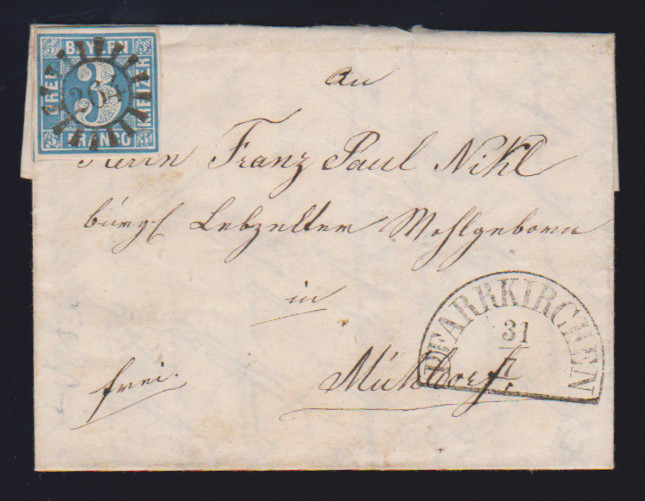 BAYERN
FREI
3
KREUZER
FRANCO
An
Herrn Franz Paul Nikl
bürgl Lebzelter Wohlgeborn
in
frei.
Mühldorf.
PFARRKIRCHEN
31